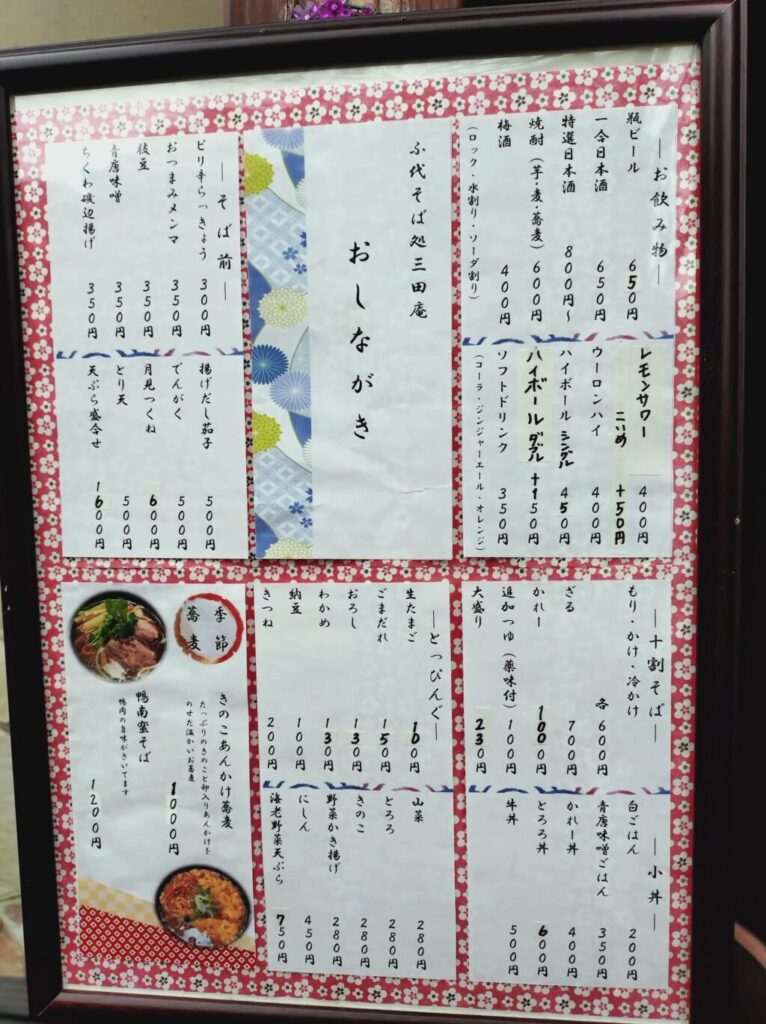 ―お飲み物―
瓶ビール 650円
一合日本酒 650円
特選日本酒 800円~
焼酎(芋・麦・蕎麦) 600円
梅酒 400円
(ロック・水割り・ソーダ割り)
レモンサワー 400円
こいめ +50円
ウーロンハイ 400円
ハイボール シングル 450円
ハイボール ダブル +150円
ソフトドリンク 350円
(コーラ・ジンジャーエール・オレンジ)
ふ代そば処三田庵
おしながき
―そば前―
ピリ辛らっきょう 300円
おつまみメンマ 350円
枝豆 350円
青唐味噌 350円
ちくわ磯辺揚げ 350円
揚げだし茄子 500円
でんがく 500円
月見つくね 600円
とり天 500円
天ぷら盛合せ 1600円
―十割そば―
もり・かけ・冷かけ 各 600円
ざる 700円
かれー 1000円
追加つゆ(薬味付) 100円
大盛り 230円
―小丼―
白ごはん 200円
青唐味噌ごはん 350円
かれー丼 400円
とろろ丼 600円
牛丼 500円
―とっぴんぐ―
生たまご 100円
ごまだれ 150円
おろし 130円
わかめ 130円
納豆 100円
きつね 200円
山菜 280円
とろろ 280円
きのこ 280円
野菜かき揚げ 280円
にしん 450円
海老野菜天ぷら 750円
季節
蕎麦
きのこあんかけ蕎麦
たっぷりのきのこと卵入りあんかけを
のせた温かいお蕎麦
1000円
鴨南蛮そば
鴨肉の旨味がきいてます
1200円